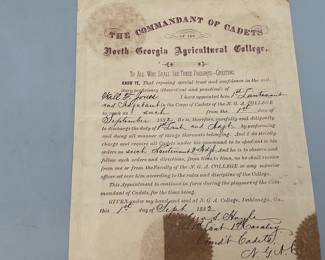 THE COMMANDANT OF CADETS
OF THE
North Georgia Agricultural College.
TO ALL WHO SHALL SEE THESE PRESENTS—GREETING
KNOW YE, That reposing special trust and confidence in the
military proficiency (theoretical and practical) of
I have appointed him 1st Lieutenant
and Adjutant in the Corps of Cadets of the N. G. A. COLLEGE
to rank as such from the 1st day of
September 1882. He is, therefore, carefully and diligently
to discharge the duty of Lieut and Adjt by performing
and doing all manner of things thereunto belonging. And I do strictly
charge and require all Cadets under his command to be obedient to his
orders as such Lieutenant & Adjt. And he is to observe and
follow such orders and directions, from time to time, as he shall receive
from me or from the Faculty of the N. G. A. COLLEGE or any superior
officer set over him according to the rules and discipline of the College.
This Appointment to continue in force during the pleasure of the Com-
mandant of Cadets, for the time being.
GIVEN under my hand and seal at N. G. A. College, Dahlonega, Ga.,
this 1st day of Sept 1882
Geo. S. Hoyle
1st Cavalry
Comdt Cadets,
N. G. A. C.